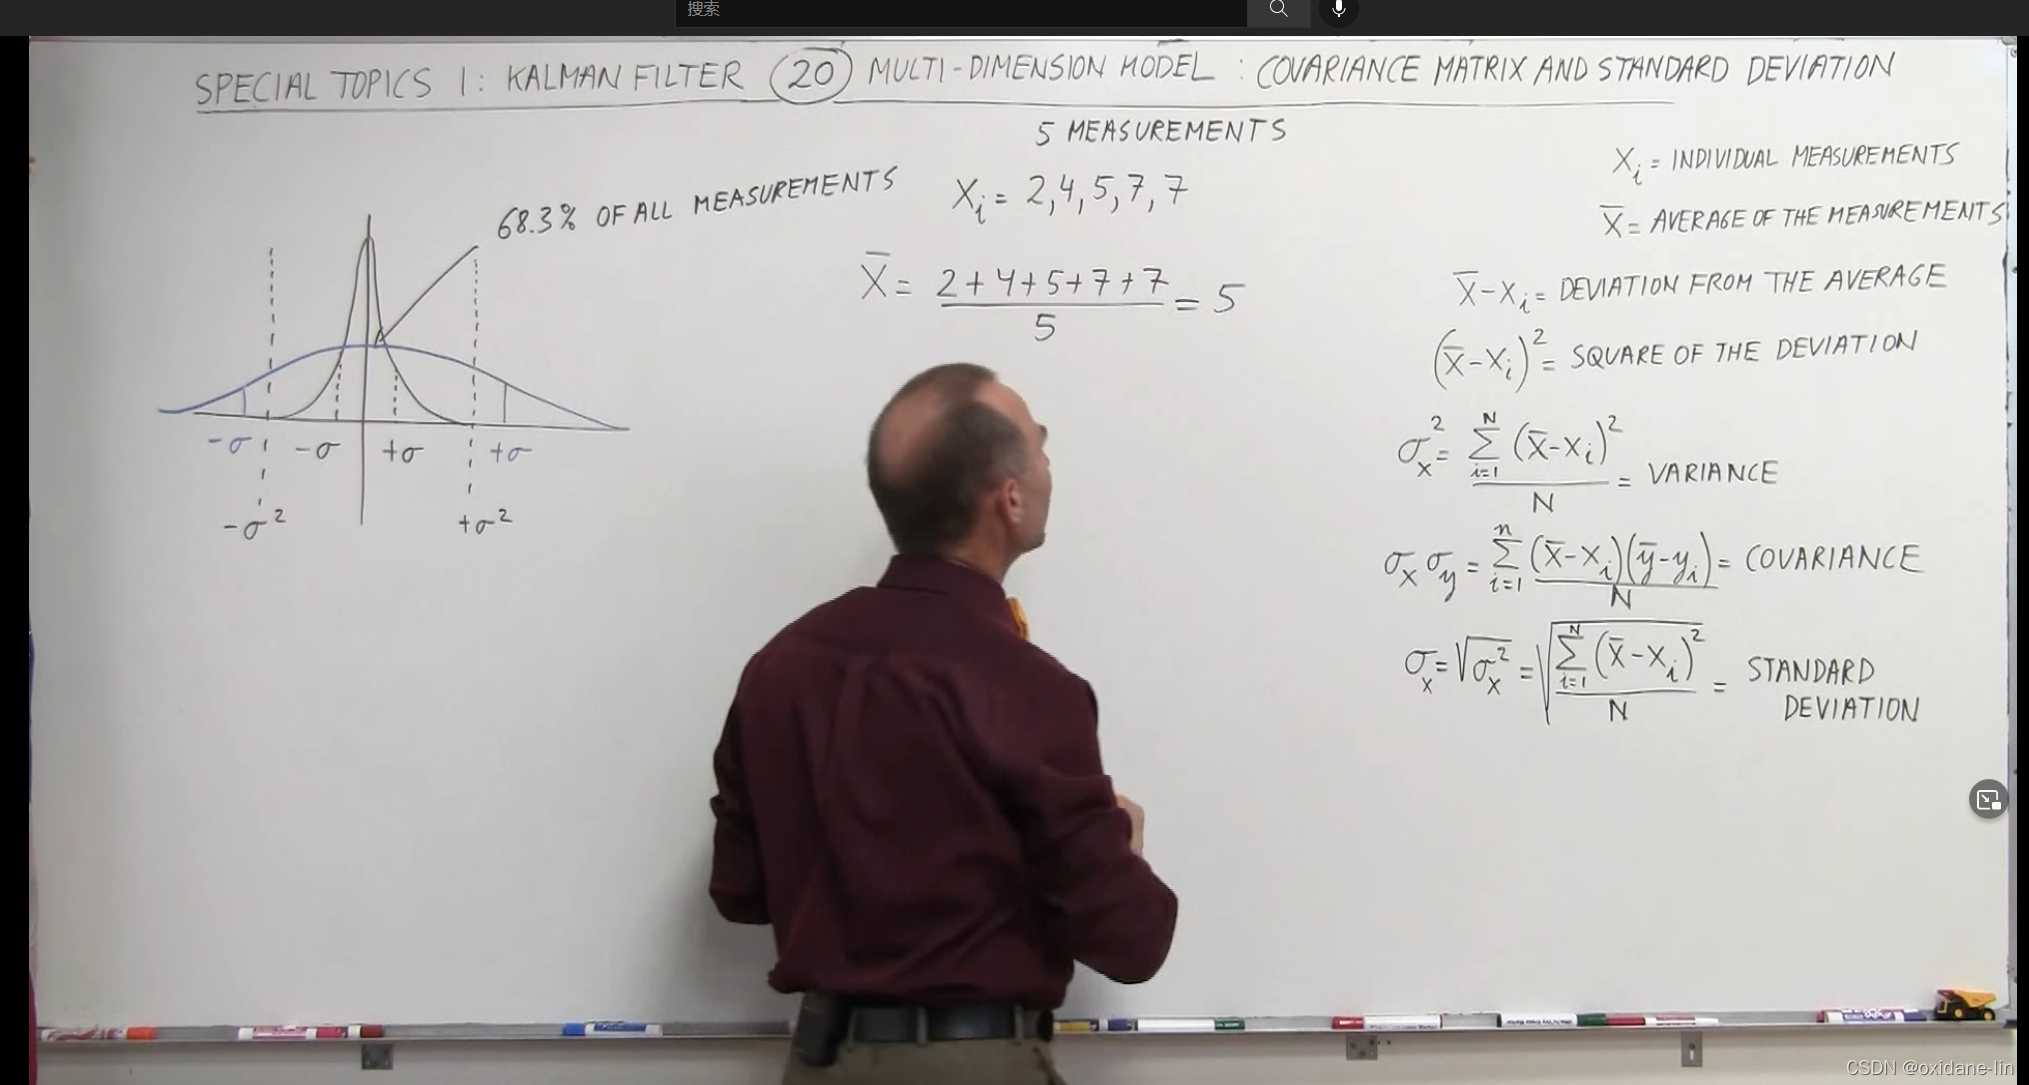 搜索
SPECIAL TOPICS 1: KALMAN FILTER (20) MULTI-DIMENSION MODEL : COVARIANCE MATRIX AND STANDARD DEVIATION
5 MEASUREMENTS
68.3% OF ALL MEASUREMENTS
Xi = 2,4,5,7,7
X̄ = (2+4+5+7+7)/5 = 5
-σ -σ +σ +σ
-σ² +σ²
Xi = INDIVIDUAL MEASUREMENTS
X̄ = AVERAGE OF THE MEASUREMENTS
X̄-Xi = DEVIATION FROM THE AVERAGE
(X̄-Xi)² = SQUARE OF THE DEVIATION
σx² = Σ(i=1 to N) (X̄-Xi)² / N = VARIANCE
σx σy = Σ(i=1 to n) (X̄-Xi)(ȳ-yi) / N = COVARIANCE
σx = √σx² = √(Σ(i=1 to N) (X̄-Xi)² / N) = STANDARD
DEVIATION
CSDN @oxidane-lin